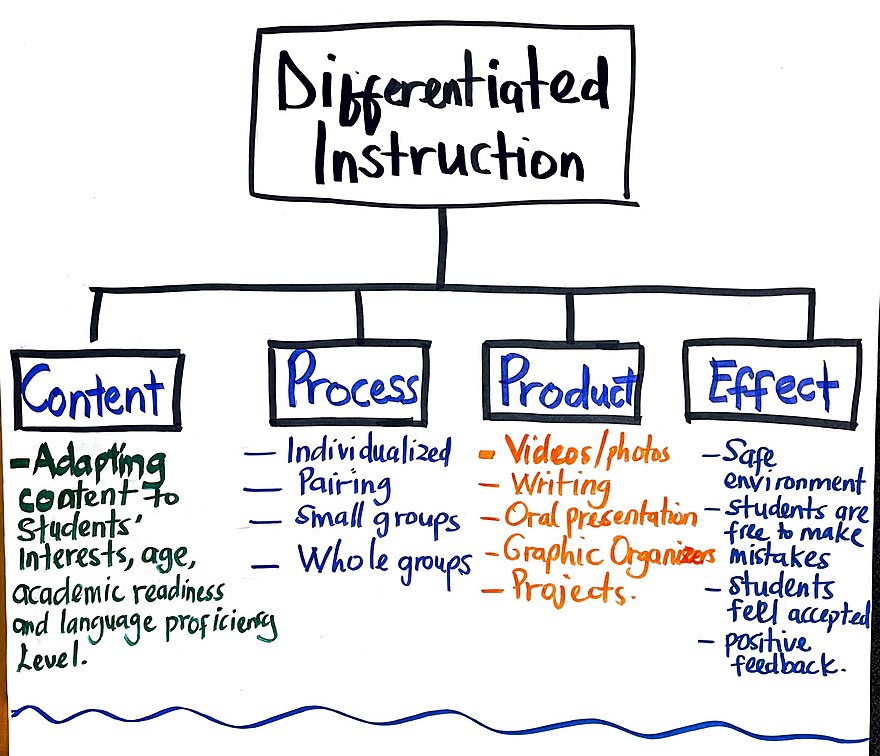 Differentiated
Instruction
Content
-Adapting
content to
students'
interests, age,
academic readiness
and language proficiency
level.
Process
- Individualized
- Pairing
- Small groups
- Whole groups
Product
- Videos/photos
- Writing
- Oral presentation
- Graphic Organizers
- Projects.
Effect
- Safe
environment
- students are
free to make
mistakes
- students
fell accepted
- positive
feedback.